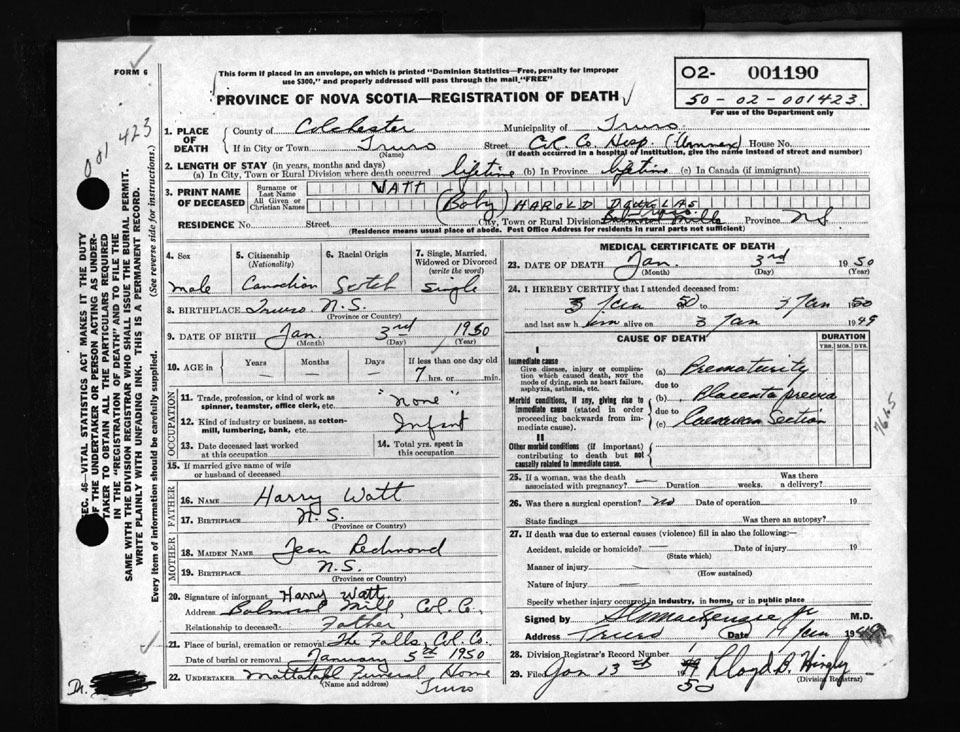 FORM 6
This form if placed in an envelope, on which is printed "Dominion Statistics—Free, penalty for improper
use $300," and properly addressed will pass through the mail "FREE"
PROVINCE OF NOVA SCOTIA—REGISTRATION OF DEATH
02- 001190
50-02-001423
For use of the Department only
001 423
SEC. 46—VITAL STATISTICS ACT MAKES IT THE DUTY
OF THE UNDERTAKER OR PERSON ACTING AS UNDER-
TAKER TO OBTAIN ALL THE PARTICULARS REQUIRED
IN THE "REGISTRATION OF DEATH" AND TO FILE THE
SAME WITH THE DIVISION REGISTRAR WHO SHALL ISSUE THE BURIAL PERMIT.
WRITE PLAINLY WITH UNFADING INK. THIS IS A PERMANENT RECORD.
Every item of information should be carefully supplied. (See reverse side for instructions.)
1. PLACE OF DEATH
County of Colchester Municipality of Truro
If in City or Town Truro Street Col. Co. Hosp. (Annex) House No.
(Name) (If death occurred in a hospital of institution, give the name instead of street and number)
2. LENGTH OF STAY (in years, months and days)
(a) In City, Town or Rural Division where death occurred lifetime (b) In Province lifetime (c) In Canada (if immigrant)
3. PRINT NAME OF DECEASED
Surname or Last Name WATT
All Given or Christian Names (Baby) HAROLD DOUGLAS
RESIDENCE No. Street City, Town or Rural Division Balmoral Mills Province N.S.
(Residence means usual place of abode. Post Office Address for residents in rural parts not sufficient)
4. Sex
male
5. Citizenship
(Nationality)
Canadian
6. Racial Origin
Scotch
7. Single, Married,
Widowed or Divorced
(write the word)
Single
8. BIRTHPLACE Truro N.S.
(Province or Country)
9. DATE OF BIRTH Jan. 3rd 1950
(Month) (Day) (Year)
10. AGE in Years Months Days If less than one day old
7 hrs. or min.
OCCUPATION
11. Trade, profession, or kind of work as
spinner, teamster, office clerk, etc. "none"
12. Kind of industry or business, as cotton-
mill, lumbering, bank, etc. Infant
13. Date deceased last worked
at this occupation
14. Total yrs. spent in
this occupation
15. If married give name of wife
or husband of deceased
FATHER
16. NAME Harry Watt
17. BIRTHPLACE N.S.
(Province or Country)
MOTHER
18. MAIDEN NAME Jean Redmond
19. BIRTHPLACE N.S.
(Province or Country)
20. Signature of informant Harry Watt
Address Balmoral Mill, Col. Co.,
Relationship to deceased Father
21. Place of burial, cremation or removal The Falls, Col. Co.
Date of burial or removal January 5th 1950
22. UNDERTAKER Mattatall Funeral Home
(Name and address) Truro
MEDICAL CERTIFICATE OF DEATH
23. DATE OF DEATH Jan. 3rd 1950
(Month) (Day) (Year)
24. I HEREBY CERTIFY that I attended deceased from:
3 Jan 50 to 3 Jan 1950
and last saw him alive on 3 Jan 1949
CAUSE OF DEATH
DURATION
YRS. MOS. DYS.
I
Immediate cause
Give disease, injury or complica-
tion which caused death, NOT the
mode of dying, such as heart failure,
asphyxia, asthenia, etc.
(a) Prematurity
due to
Morbid conditions, if any, giving rise to
immediate cause (stated in order
proceeding backwards from im-
mediate cause).
(b) Placenta previa
due to
(c) Caesarean Section
7665
II
Other morbid conditions (if important)
contributing to death but not
causally related to immediate cause.
25. If a woman, was the death
associated with pregnancy? — Duration weeks. Was there
a delivery?
26. Was there a surgical operation? no Date of operation 19
State findings Was there an autopsy?
27. If death was due to external causes (violence) fill in also the following:—
Accident, suicide or homicide? Date of injury 19
(State which)
Manner of injury
(How sustained)
Nature of injury
Specify whether injury occurred in industry, in home, or in public place
Signed by MacKenzie Jr M.D.
Address Truro Date Jan 19
28. Division Registrar's Record Number 1
29. Filed Jan 13th 50 Lloyd B. Hingley
(Division Registrar)